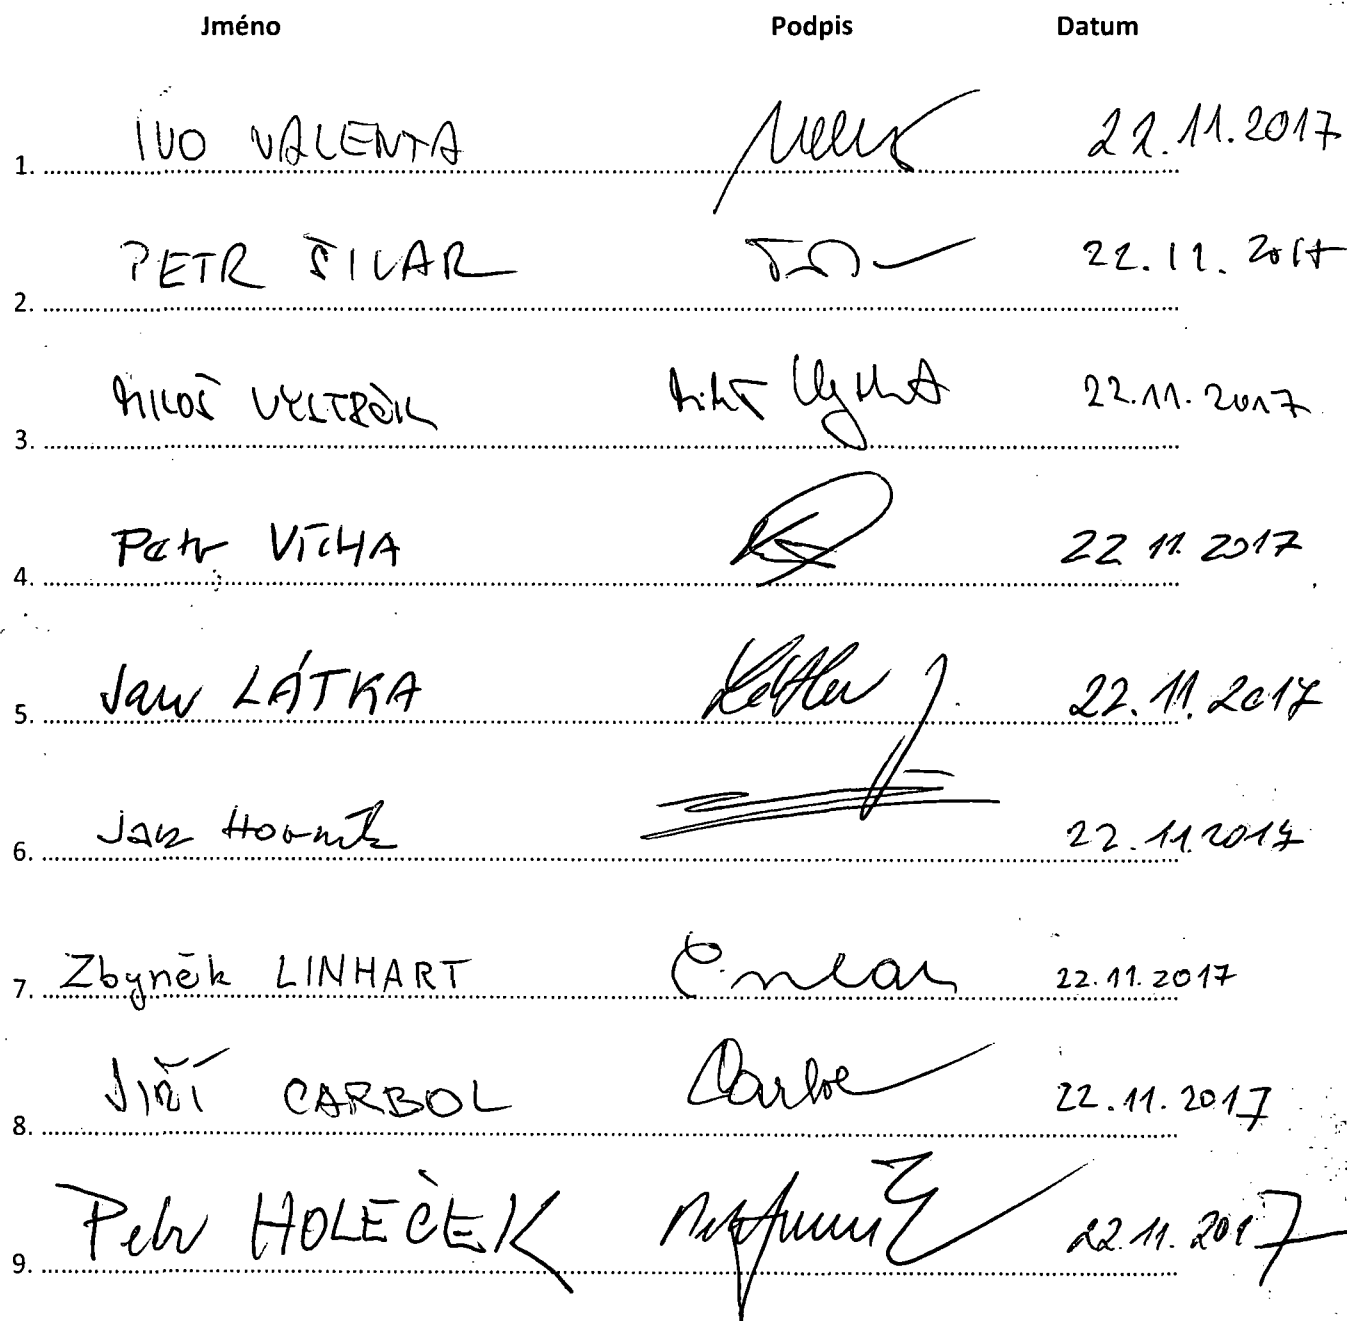 Jméno Podpis Datum
1. IVO VALENTA 22.11.2017
2. PETR ŠILAR 22.11.2017
3. MILOŠ VYSTRČIL 22.11.2017
4. Petr VÍCHA 22 11. 2017
5. Jan LÁTKA 22.11.2017
6. Jan Horník 22.11.2017
7. Zbyněk LINHART 22.11.2017
8. JIŘÍ CARBOL Carbol 22.11.2017
9. Petr HOLEČEK 22.11.2017